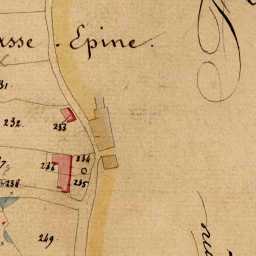 asse . Epine.
31.
232.
233
7
236
234
235
238
249
nu